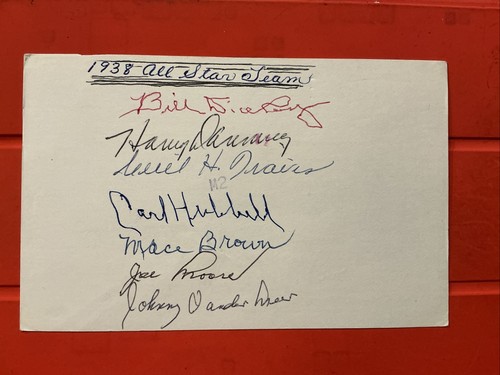 1938 All Star Team
Bill Dickey
Harry Danning
Cecil H. Travis
M2
Carl Hubbell
Mace Brown
Joe Moore
Johnny Vander Meer